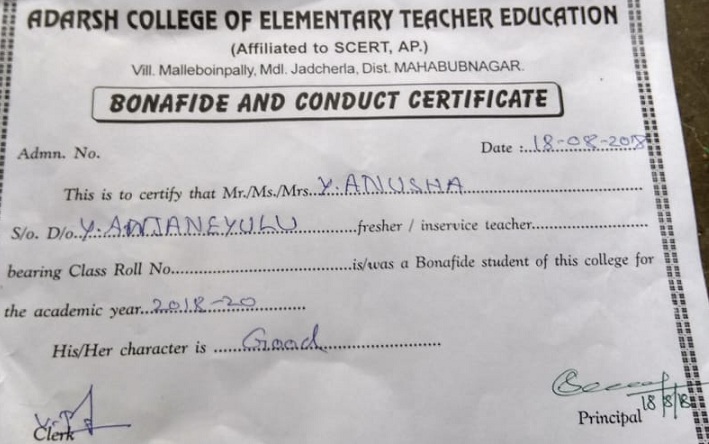 ADARSH COLLEGE OF ELEMENTARY TEACHER EDUCATION
(Affiliated to SCERT, AP.)
Vill. Malleboinpally, Mdl. Jadcherla, Dist. MAHABUBNAGAR.
BONAFIDE AND CONDUCT CERTIFICATE
Admn. No. Date :..18-08-2018
This is to certify that Mr./Ms./Mrs...Y.ANUSHA
S/o. D/o.Y.ANJANEYULU fresher / inservice teacher
bearing Class Roll No. is/was a Bonafide student of this college for
the academic year...2018-20
His/Her character is Good
18/8/18
Clerk Principal